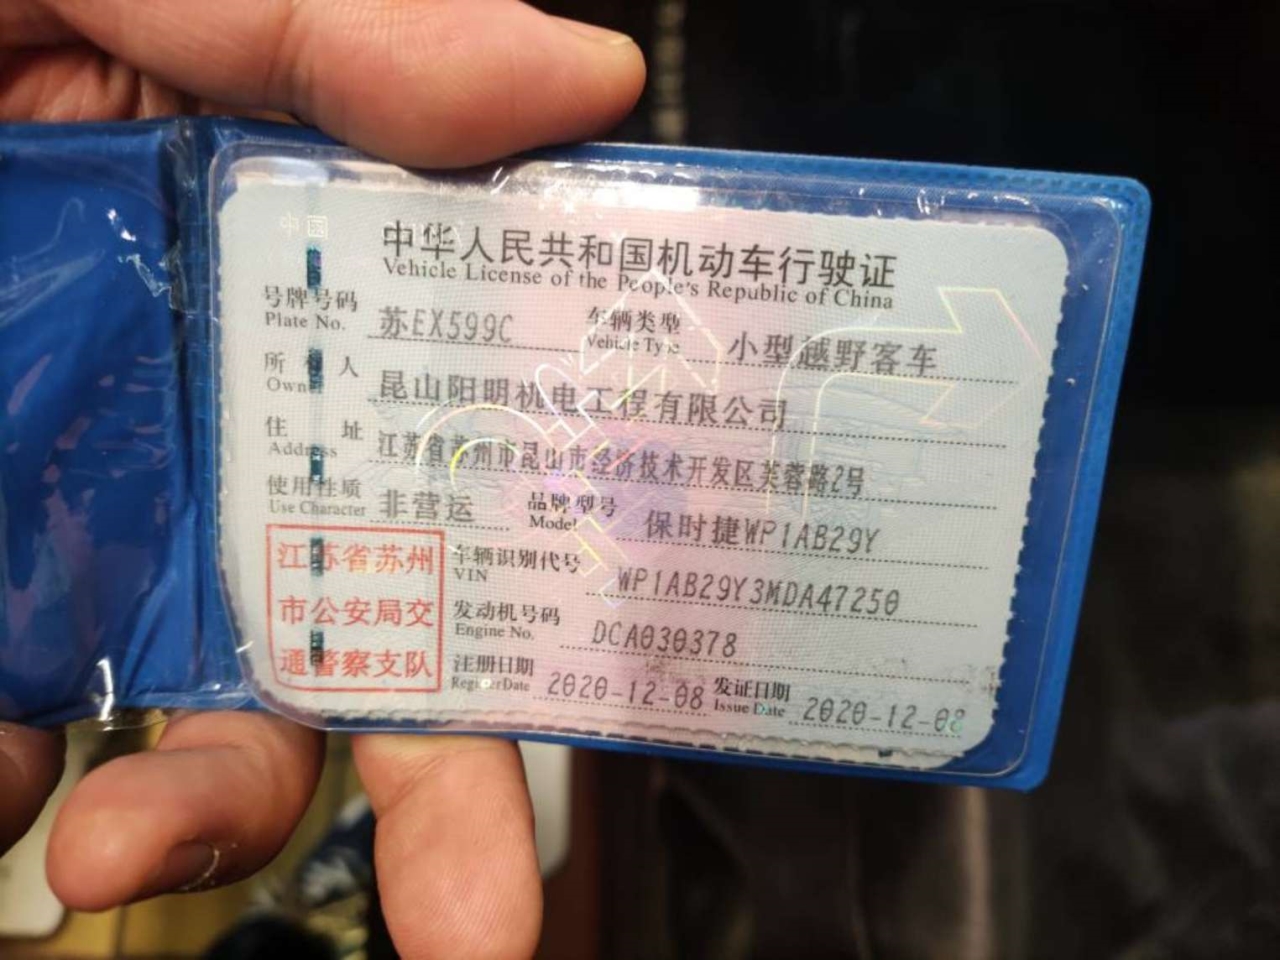 中国
中华人民共和国机动车行驶证
Vehicle License of the People's Republic of China
号牌号码 苏EX599C 车辆类型 小型越野客车
Plate No. Vehicle Type
所有人 昆山阳明机电工程有限公司
Owner
住址 江苏省苏州市昆山市经济技术开发区芙蓉路2号
Address
使用性质 非营运 品牌型号 保时捷WP1AB29Y
Use Character Model
江苏省苏州
市公安局交
通警察支队
车辆识别代号 WP1AB29Y3MDA47250
VIN
发动机号码 DCA030378
Engine No.
注册日期 2020-12-08 发证日期 2020-12-08
Register Date Issue Date